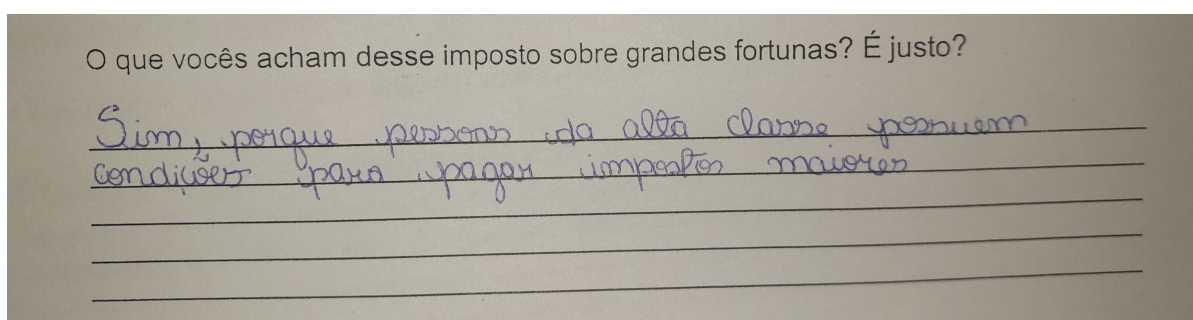 O que vocês acham desse imposto sobre grandes fortunas? É justo?
Sim, porque pessoas da alta classe possuem
condições para pagar impostos maiores